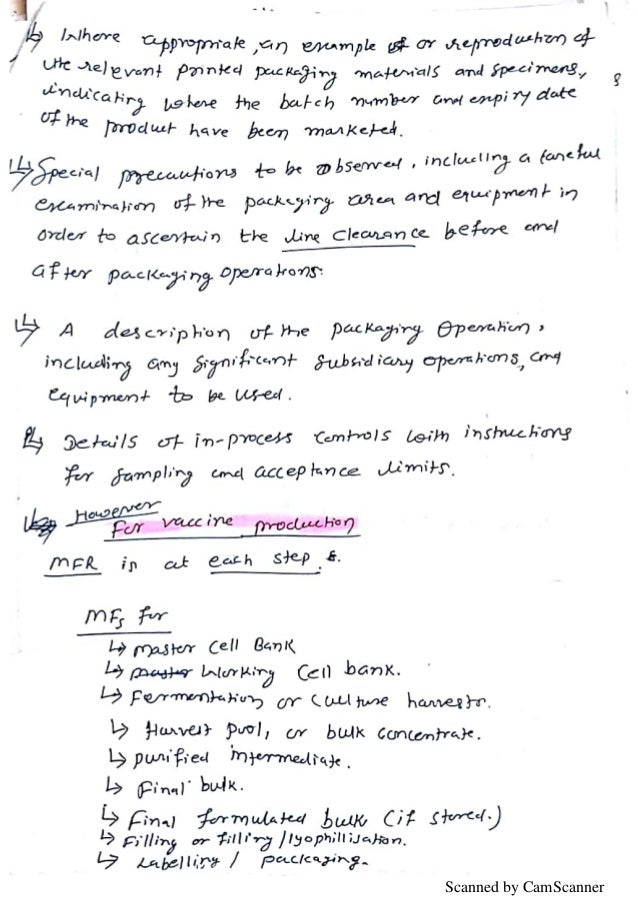 ↳ Where appropriate, an example of or reproduction of
the relevant printed packaging materials and specimens,
indicating where the batch number and expiry date
of the product have been marketed.
↳ Special precautions to be observed, including a careful
examination of the packaging area and equipment in
order to ascertain the line clearance before and
after packaging operations.
↳ A description of the packaging operation,
including any significant subsidiary operations, and
equipment to be used.
↳ Details of in-process controls with instructions
for sampling and acceptance limits.
However
for vaccine production
MFR is at each step &.
MFs for
↳ Master Cell Bank
↳ Working Cell bank.
↳ Fermentation or culture harvestor.
↳ Harvest pool, or bulk concentrate.
↳ purified intermediate.
↳ final bulk.
↳ Final formulated bulk (if stored.)
↳ Filling or filling/lyophillisation.
↳ Labelling / packaging.
Scanned by CamScanner